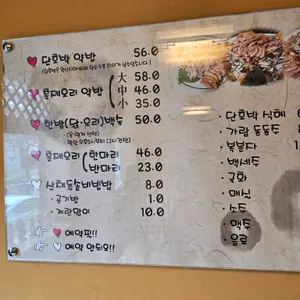 단호박 약밥 56.0
훈제오리 약밥 大 58.0
中 46.0
小 35.0
한방(닭·오리)백숙 50.0
훈제오리 한마리 46.0
반마리 23.0
산채돌솥비빔밥 8.0
· 공기밥 1.0
· 계란말이 10.0
☞ ♥ 예약필!!
☞ ♡ 예약 안되요!!
· 단호박 식혜
· 가람 동동주
· 복분자
· 백세주
· 국화
· 매실
· 소주
· 맥주
· 음료